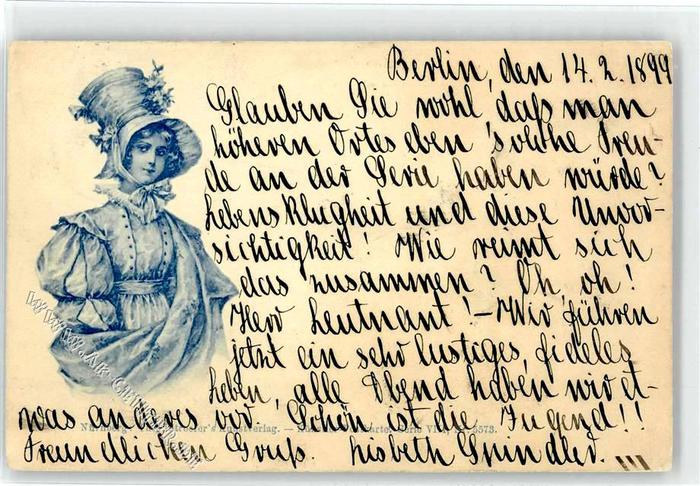 Berlin, den 14.2.1899
Glauben Sie wohl, daß man
höheren Ortes eben solche Freu-
de an der Serie haben würde?
Lebensklugheit und diese Unvor-
sichtigkeit! Wie reimt sich
das zusammen? Oh, oh!
Herr Leutnant! – Wir führen
jetzt ein sehr lustiges, fideles
Leben, alle Abend haben wir et-
was andres vor. Schön ist die Jugend!!
Freundlichen Gruß. Lisbeth Spindler.